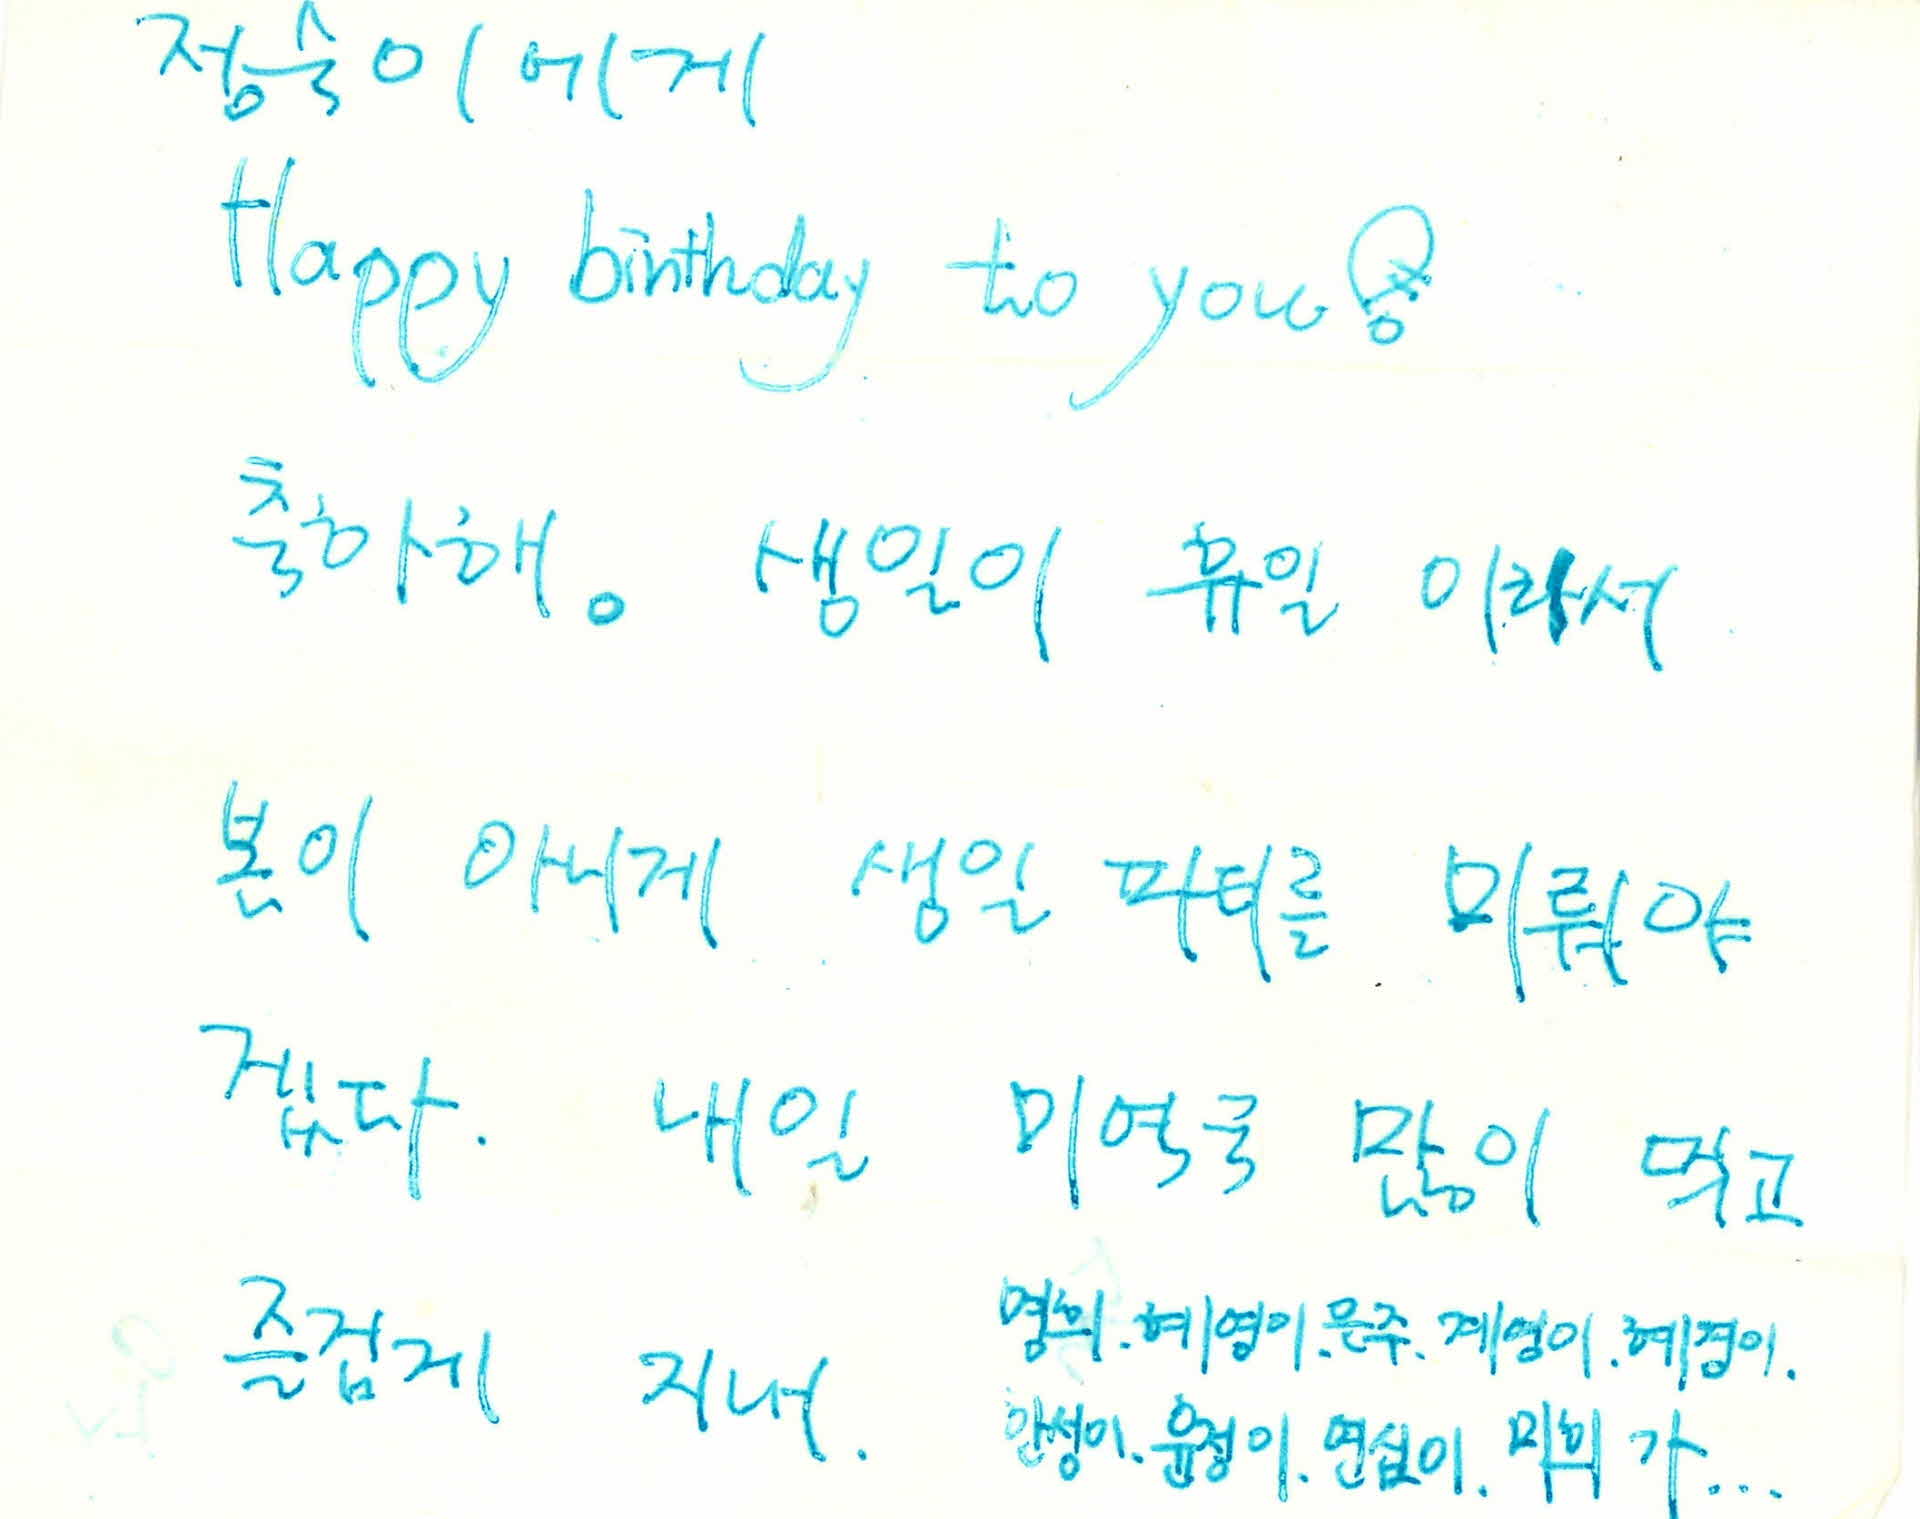 정숙이에게
Happy birthday to you
축하해. 생일이 휴일 이라서
본이 아니게 생일 파티를 미뤄야
겠다. 내일 미역국 많이 먹고
즐겁게 지내.
명희. 혜영이. 은주. 계영이. 혜경이.
안성이. 윤정이. 연섭이. 미희 가...